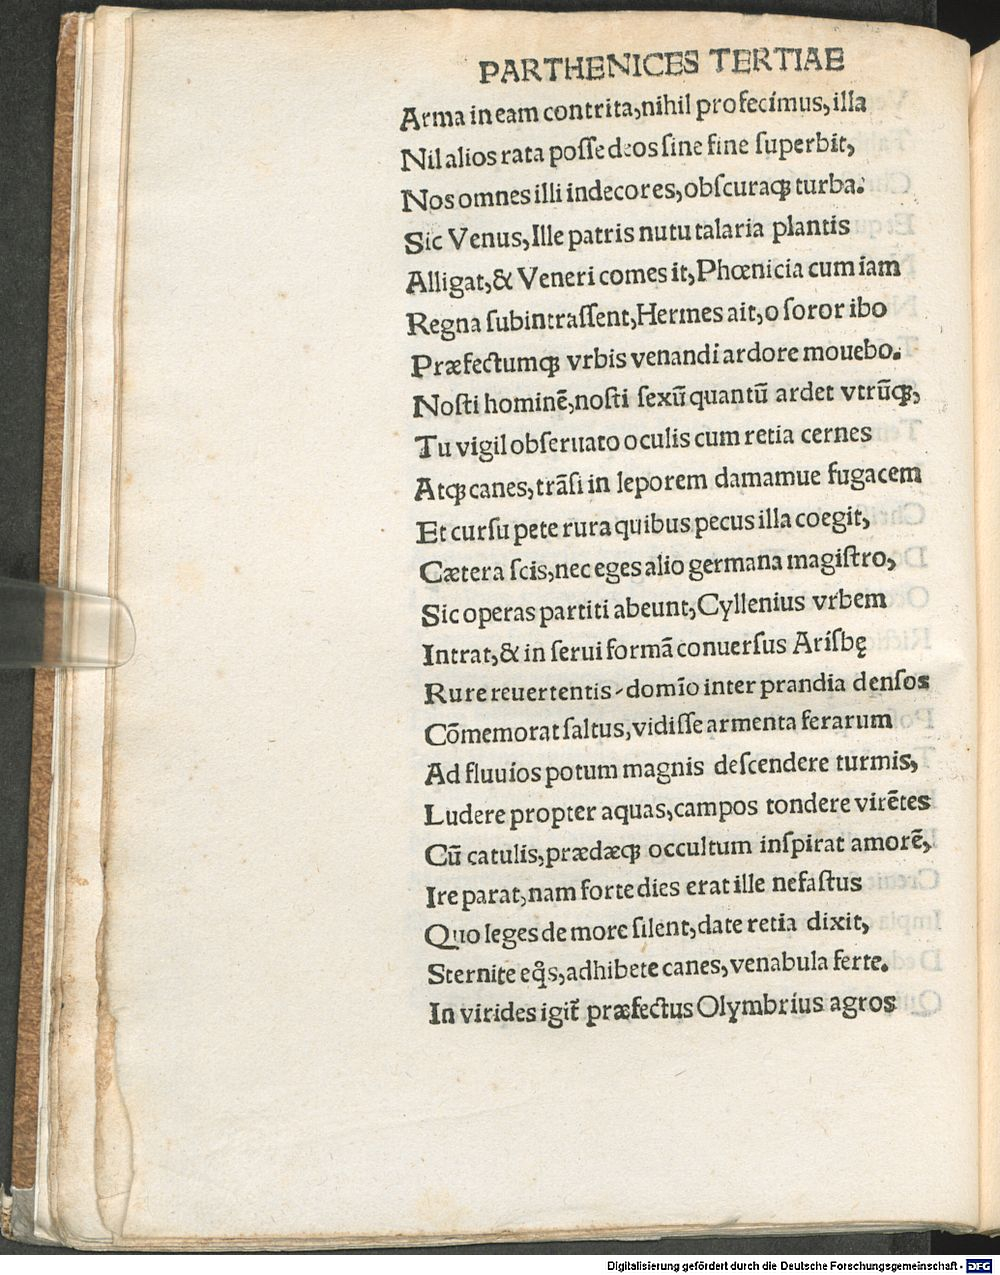 PARTHENICES TERTIAE
Arma in eam contrita, nihil profecimus, illa
Nil alios rata poſſe deos ſine fine ſuperbit,
Nos omnes illi indecores, obſcuraqꝫ turba.
Sic Venus, Ille patris nutu talaria plantis
Alligat, & Veneri comes it, Phœnicia cum iam
Regna ſubintraſſent, Hermes ait, o ſoror ibo
Præfectumqꝫ vrbis venandi ardore mouebo.
Noſti hominē, noſti ſexū quantū ardet vtrūqꝫ,
Tu vigil obſeruato oculis cum retia cernes
Atqꝫ canes, trāſi in leporem damamue fugacem
Et curſu pete rura quibus pecus illa coegit,
Cætera ſcis, nec eges alio germana magiſtro,
Sic operas partiti abeunt, Cyllenius vrbem
Intrat, & in ſerui formā conuerſus Ariſbę
Rure reuertentis, domīo inter prandia denſos
Cōmemorat ſaltus, vidiſſe armenta ferarum
Ad fluuios potum magnis deſcendere turmis,
Ludere propter aquas, campos tondere virētes
Cū catulis, prædæqꝫ occultum inſpirat amorē,
Ire parat, nam forte dies erat ille nefaſtus
Quo leges de more ſilent, date retia dixit,
Sternite eq̊s, adhibete canes, venabula ferte.
In virides igit̃ præfectus Olymbrius agros
Digitalisierung gefördert durch die Deutsche Forschungsgemeinschaft - DFG